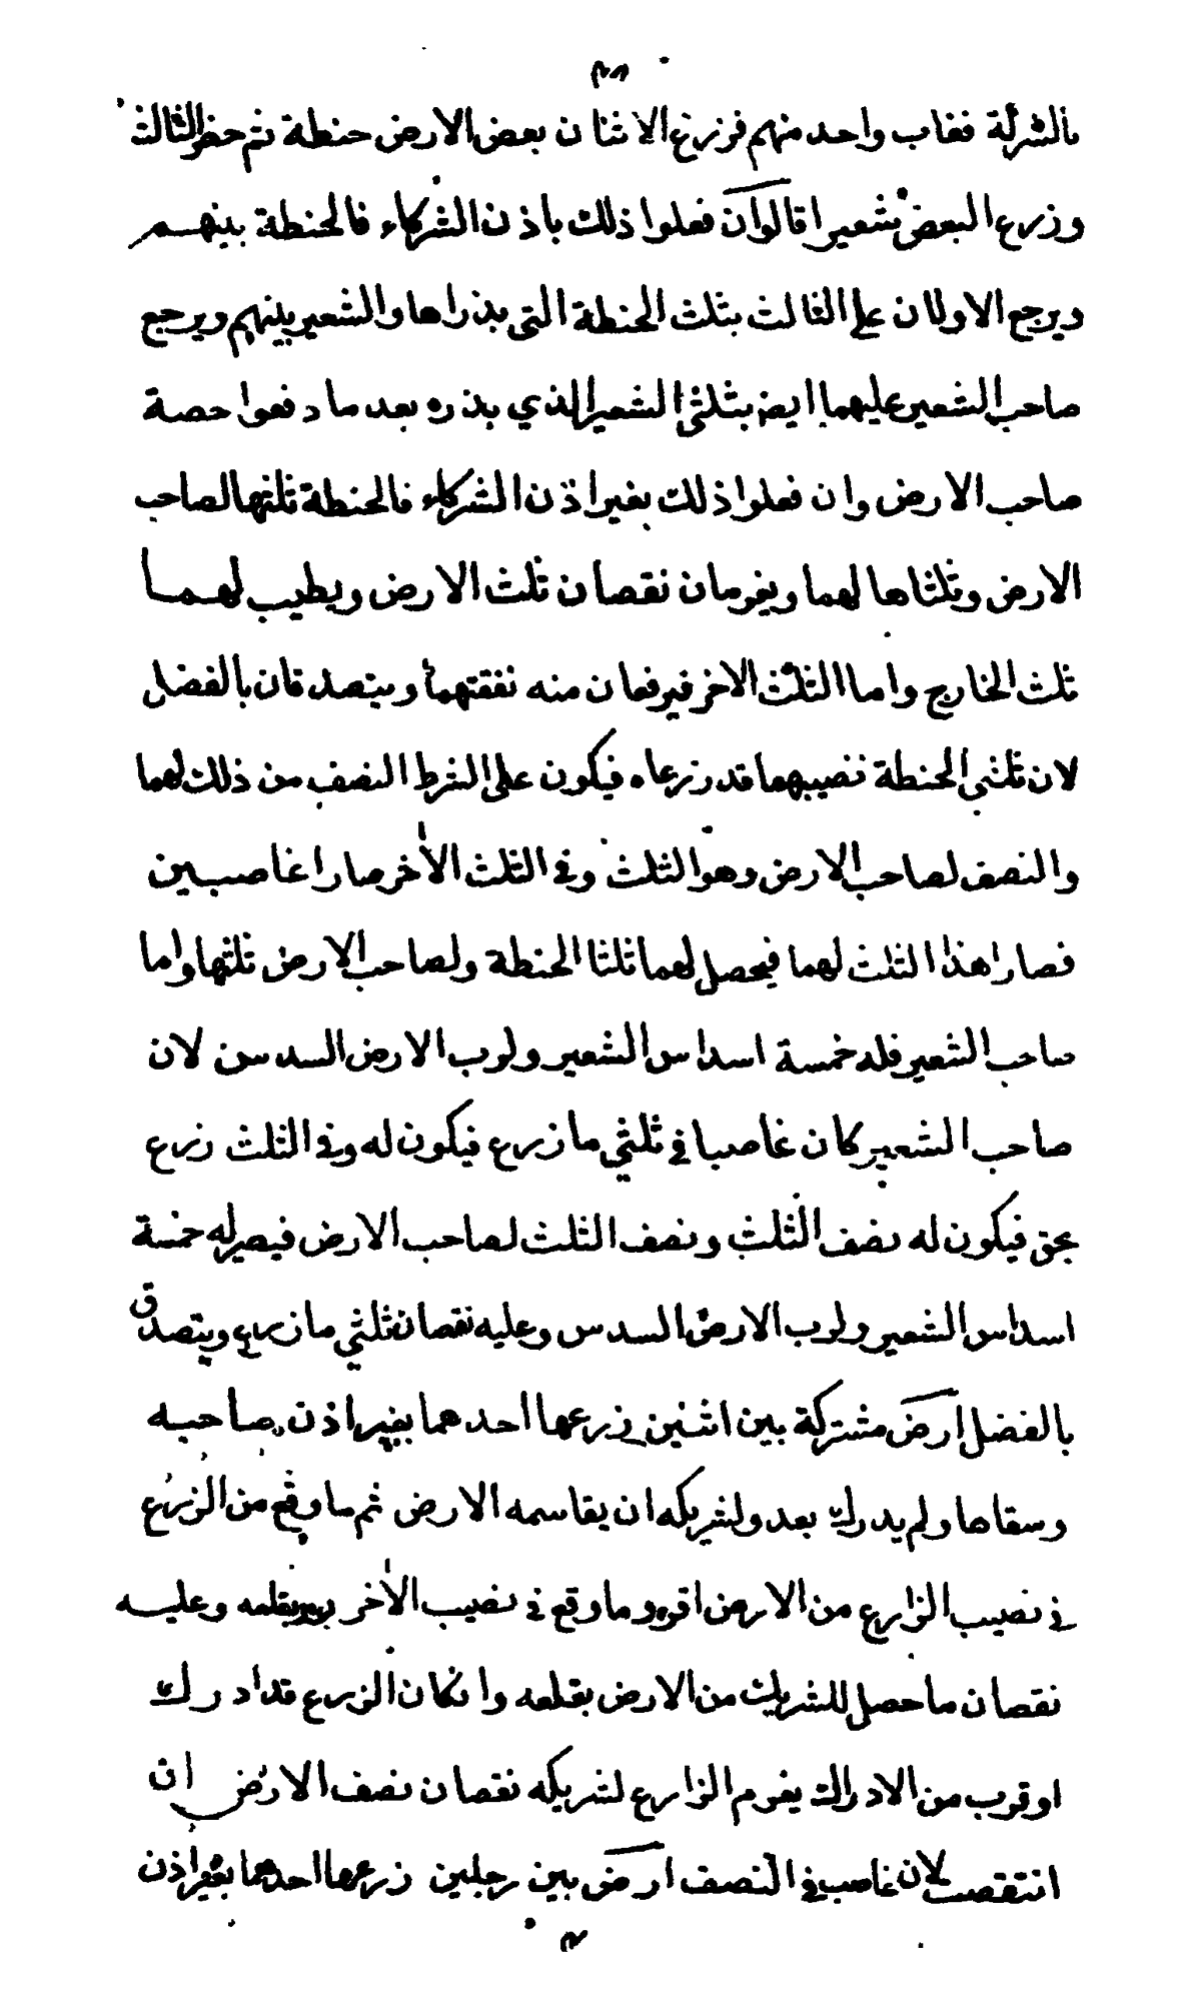 بالشركة فغاب واحد منهم فزرع الاثنان بعض الارض حنطة ثم حضر الثالث
وزرع البعض شعيرا قالوا ان فعلوا ذلك باذن الشركاء فالحنطة بينهم
ويرجع الاولان على الثالث بثلث الحنطة التى بذراها والشعير بينهم ويرجع
صاحب الشعير عليهما ايضا بثلثى الشعير الذي بذره بعد ما دفعوا حصة
صاحب الارض وان فعلوا ذلك بغير اذن الشركاء فالحنطة ثلثها لصاحب
الارض وثلثاها لهما ويغرمان نقصان ثلث الارض ويطيب لهما
ثلث الخارج واما الثلث الاخر فيرفعان منه نفقتهما ويتصدقان بالفضل
لان ثلثى الحنطة نصيبهما قد زرعاه فيكون على الشرط النصف من ذلك لهما
والنصف لصاحب الارض وهو الثلث وفى الثلث الأخر صارا غاصبين
فصار هذا الثلث لهما فيحصل لهما ثلثا الحنطة ولصاحب الارض ثلثها واما
صاحب الشعير فله خمسة اسداس الشعير ولرب الارض السدس لان
صاحب الشعير كان غاصبا في ثلثي ما زرع فيكون له وفى الثلث زرع
بحق فيكون له نصف الثلث ونصف الثلث لصاحب الارض فيصير له خمسة
اسداس الشعير ولرب الارض السدس وعليه نقصان ثلثي ما زرع ويتصدق
بالفضل ارض مشتركة بين اثنين زرعها احدهما بغير اذن صاحبه
وسقاها ولم يدرك بعد ولشريكه ان يقاسمه الارض ثم ما وقع من الزرع
في نصيب الزارع من الارض اقره وما وقع في نصيب الأخر يقلعه وعليه
نقصان ما حصل للشريك من الارض بقلعه وان كان الزرع قد ادرك
او قرب من الادراك يغرم الزارع لشريكه نقصان نصف الارض ان
انتقصت لان غاصب في النصف ارض بين رجلين زرعها احدهما بغير اذن